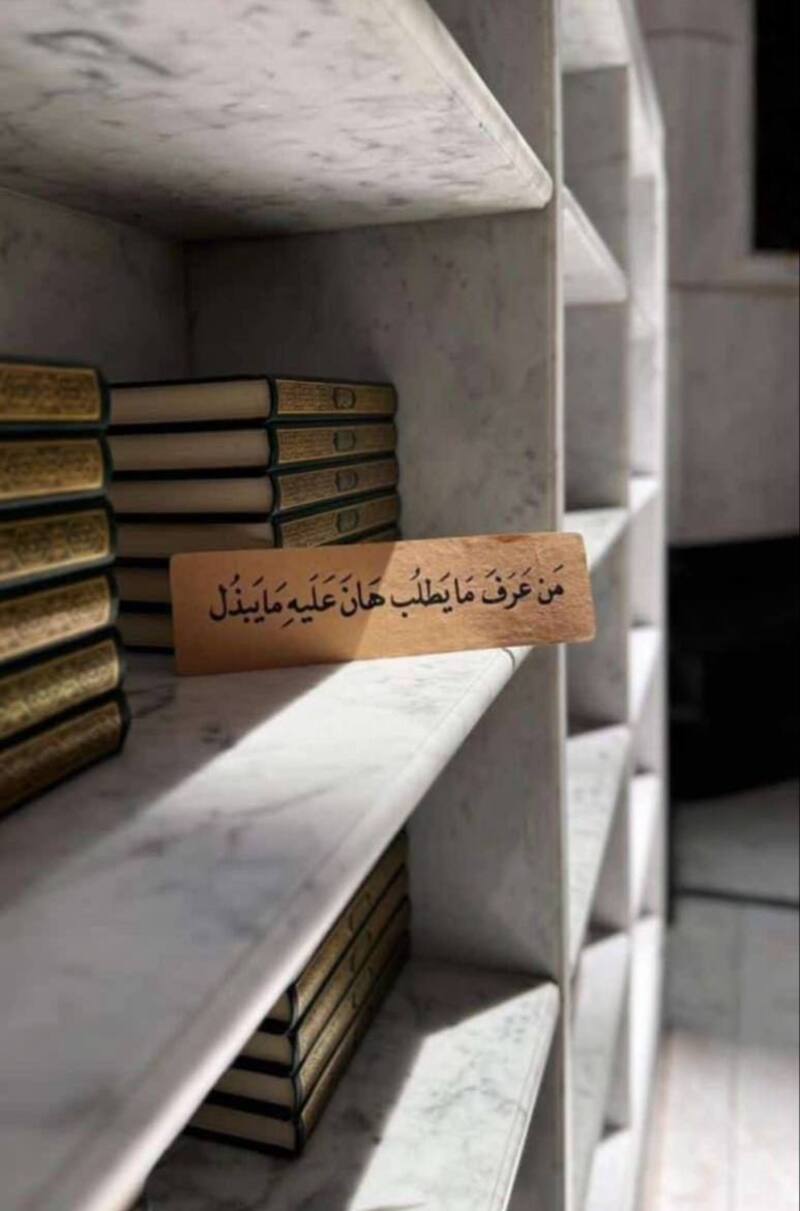 مَن عَرَفَ مَا يَطلُب هَانَ عَلَيهِ مَا يَبذُل